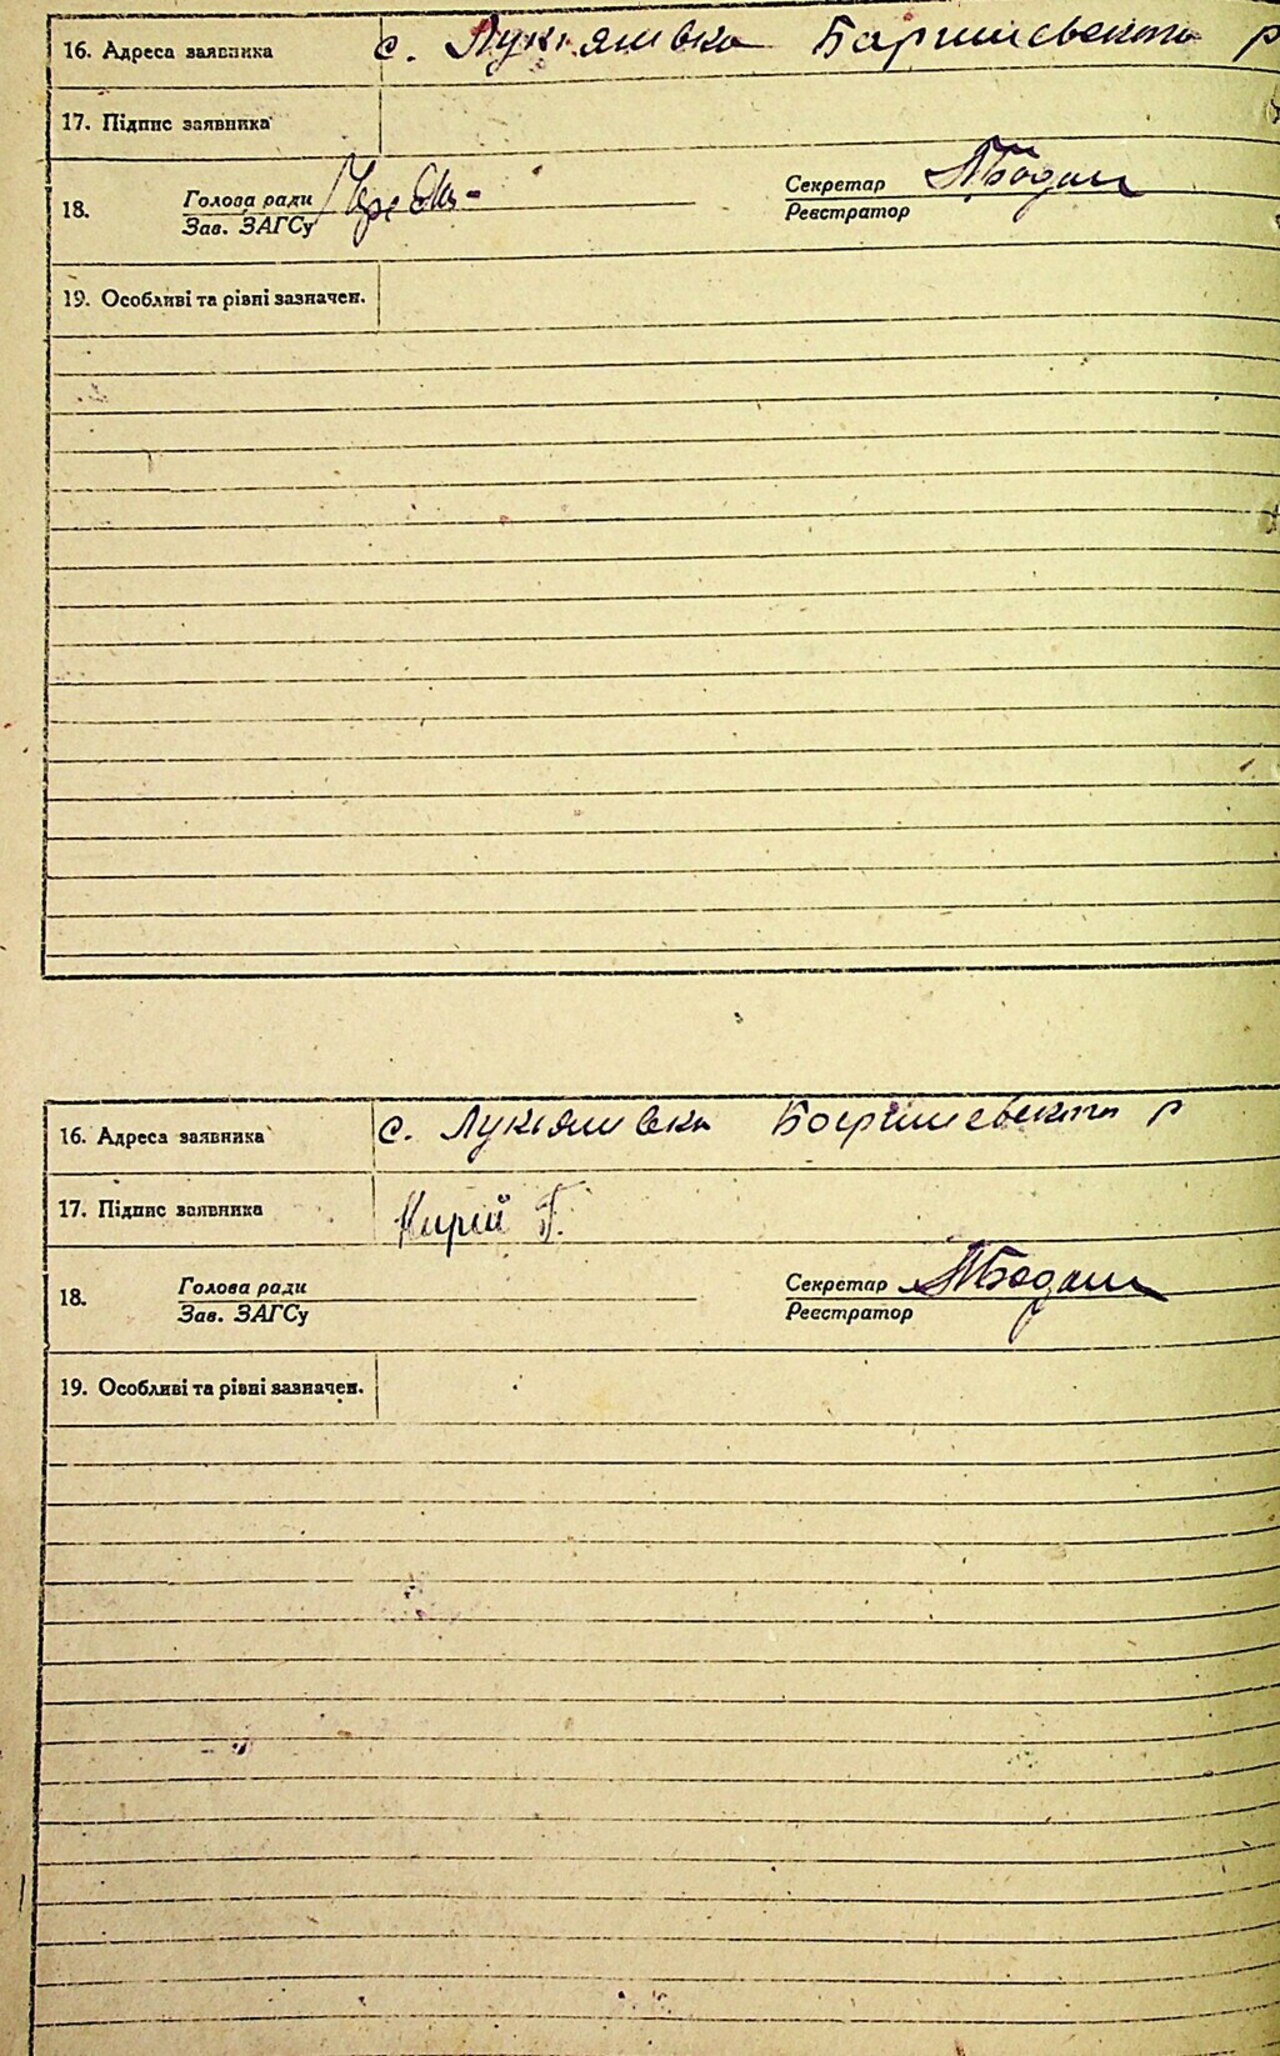 16. Адреса заявника с. Лукіянівка Баришевського р
17. Підпис заявника
18. Голова ради Секретар
Зав. ЗАГСу Реєстратор
19. Особливі та рівні зазначен.
16. Адреса заявника с. Лукіянівка Баришевського р
17. Підпис заявника Кирій Г.
18. Голова ради Секретар
Зав. ЗАГСу Реєстратор
19. Особливі та рівні зазначен.